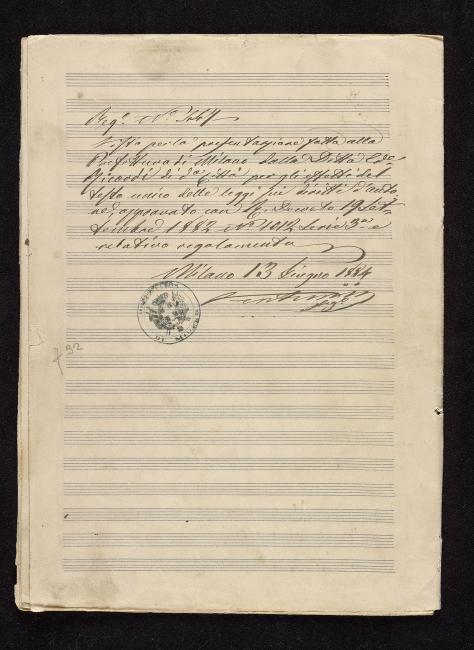 Reg.º N.º
Visto per la presentazione fatta alla
Prefettura di Milano dalla Ditta
Ricordi di d.ª Città per gli effetti del
testo unico delle leggi sui diritti d'auto
re, approvato con R. Decreto 19 Set-
tembre 1882 N.º 1012 Serie 3.ª e
relativo regolamento
Milano 13 Giugno 1884
PREFETTURA DI MILANO